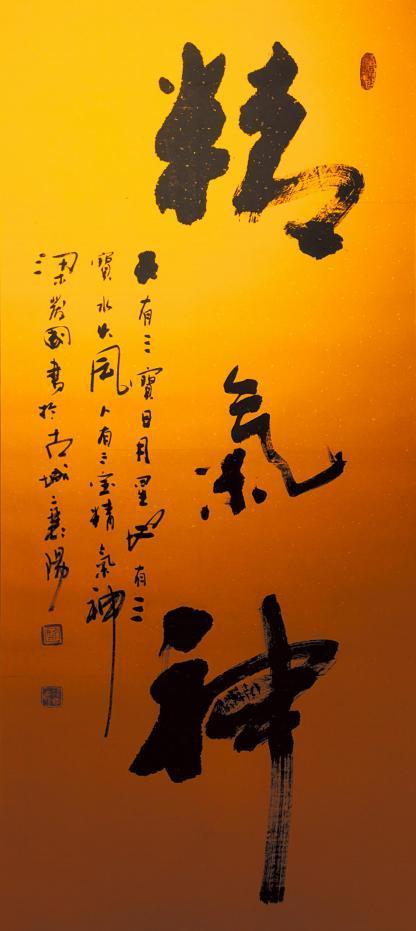 精氣神
天有三寶日月星地有三
寶水火風人有三宝精氣神
書於古城襄陽